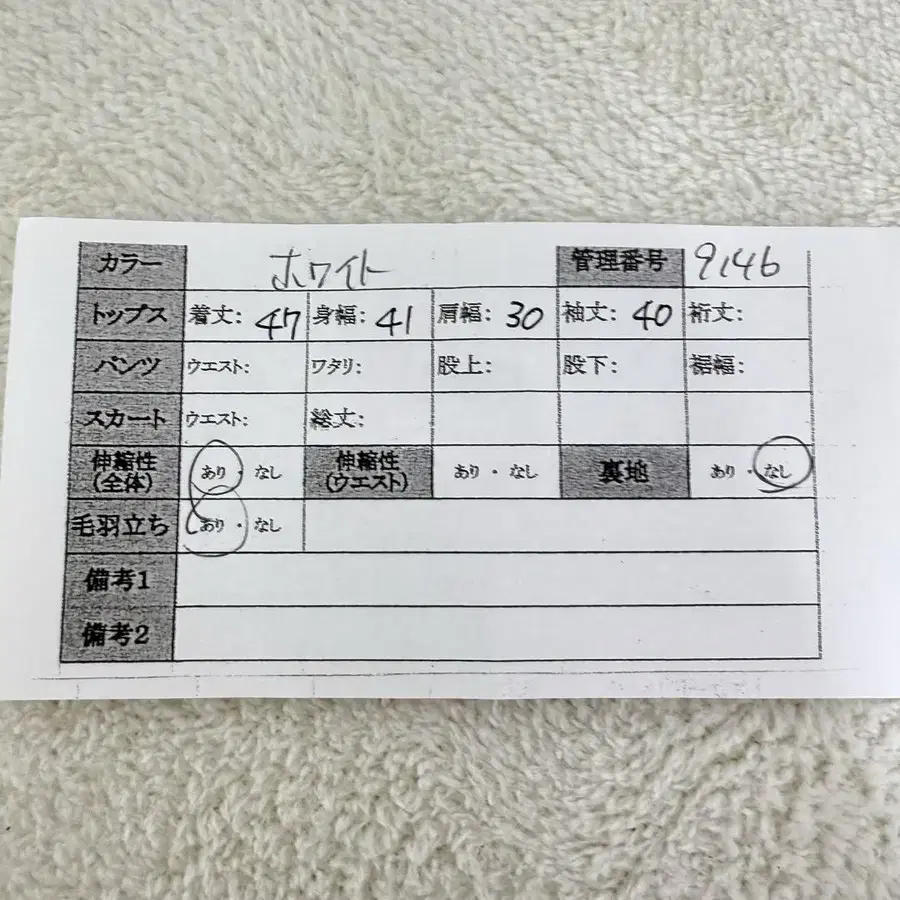 カラー ホワイト 管理番号 9146
トップス 着丈: 47 身幅: 41 肩幅: 30 袖丈: 40 裄丈:
パンツ ウエスト: ワタリ: 股上: 股下: 裾幅:
スカート ウエスト: 総丈:
伸縮性 (全体) あり・なし 伸縮性 (ウエスト) あり・なし 裏地 あり・なし
毛羽立ち あり・なし
備考1
備考2